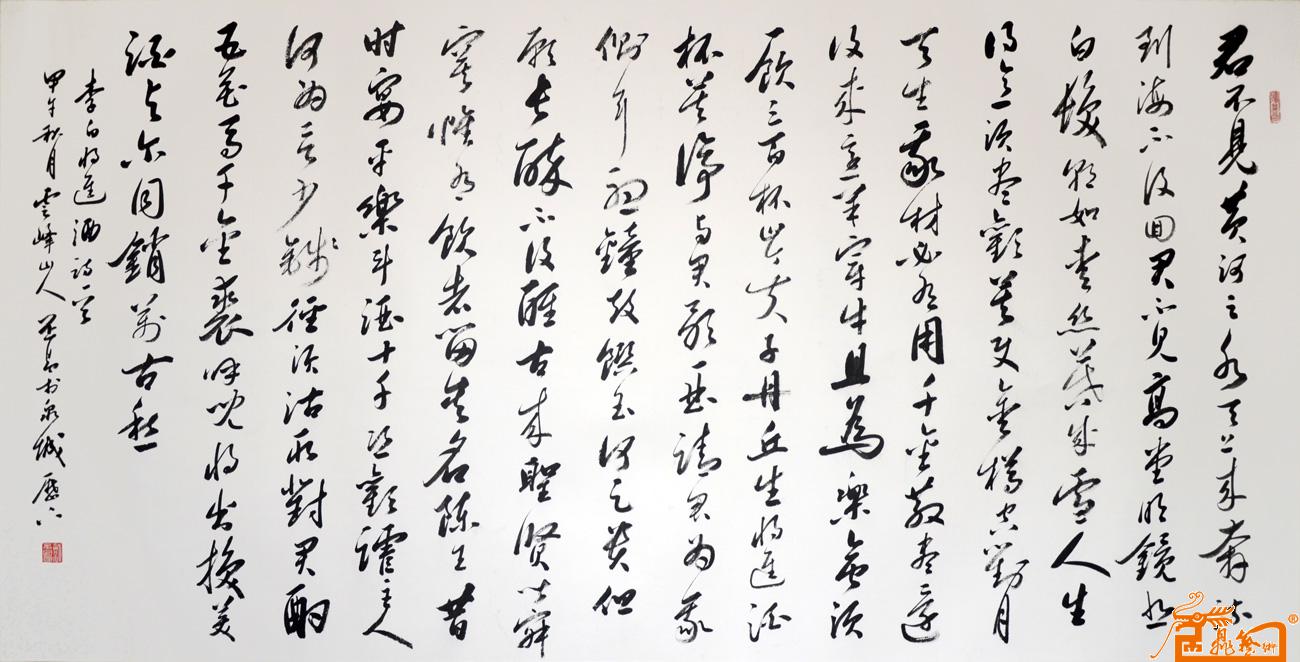 君不見黄河之水天上来奔流
到海不復回君不見高堂明鏡悲
白髮朝如青丝暮成雪人生
得意須盡歡莫使金樽空對月
天生我材必有用千金散盡還
復来烹羊宰牛且為樂會須
一飲三百杯岑夫子丹丘生将進酒
杯莫停与君歌一曲請君为我
倾耳聽鐘鼓饌玉何足贵但
願长醉不復醒古来聖贤皆寂
寞惟有飲者留其名陳王昔
时宴平樂斗酒十千恣歡謔主人
何为言少錢徑須沽取對君酌
五花马千金裘呼児将出换美
酒与尔同銷萬古愁
李白将進酒詩一首
甲午秋月雲峰山人书泉城歷下